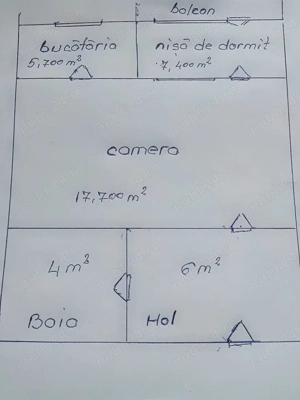 balcon
bucătăria
5,700 m²
nișă de dormit
7,400 m²
camera
17,700 m²
4 m³
6 m²
Baia
Hol